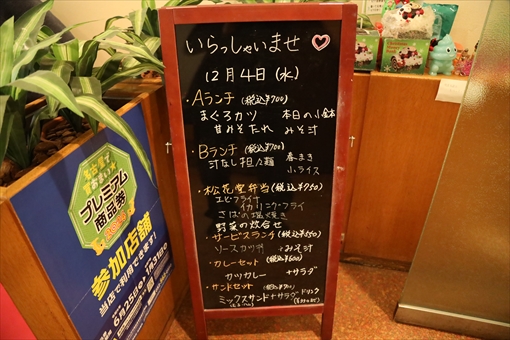 いらっしゃいませ♡
12月4日(水)
・Aランチ (税込¥700)
まぐろカツ 本日の小鉢
甘みそだれ みそ汁
・Bランチ (税込¥700)
汁なし担々麺 春まき
小ライス
・松花堂弁当(税込¥750)
エビフライ
イカリングフライ
さばの塩焼き
野菜の炊合せ
・サービスランチ(税込¥550)
ソースカツ丼 みそ汁
・カレーセット (税込¥600)
カツカレー +サラダ
・サンドセット
ミックスサンド+サラダ+ドリンク
プレミアム
商品券
参加店舗
当店で利用できます!
6月25日
7月31日